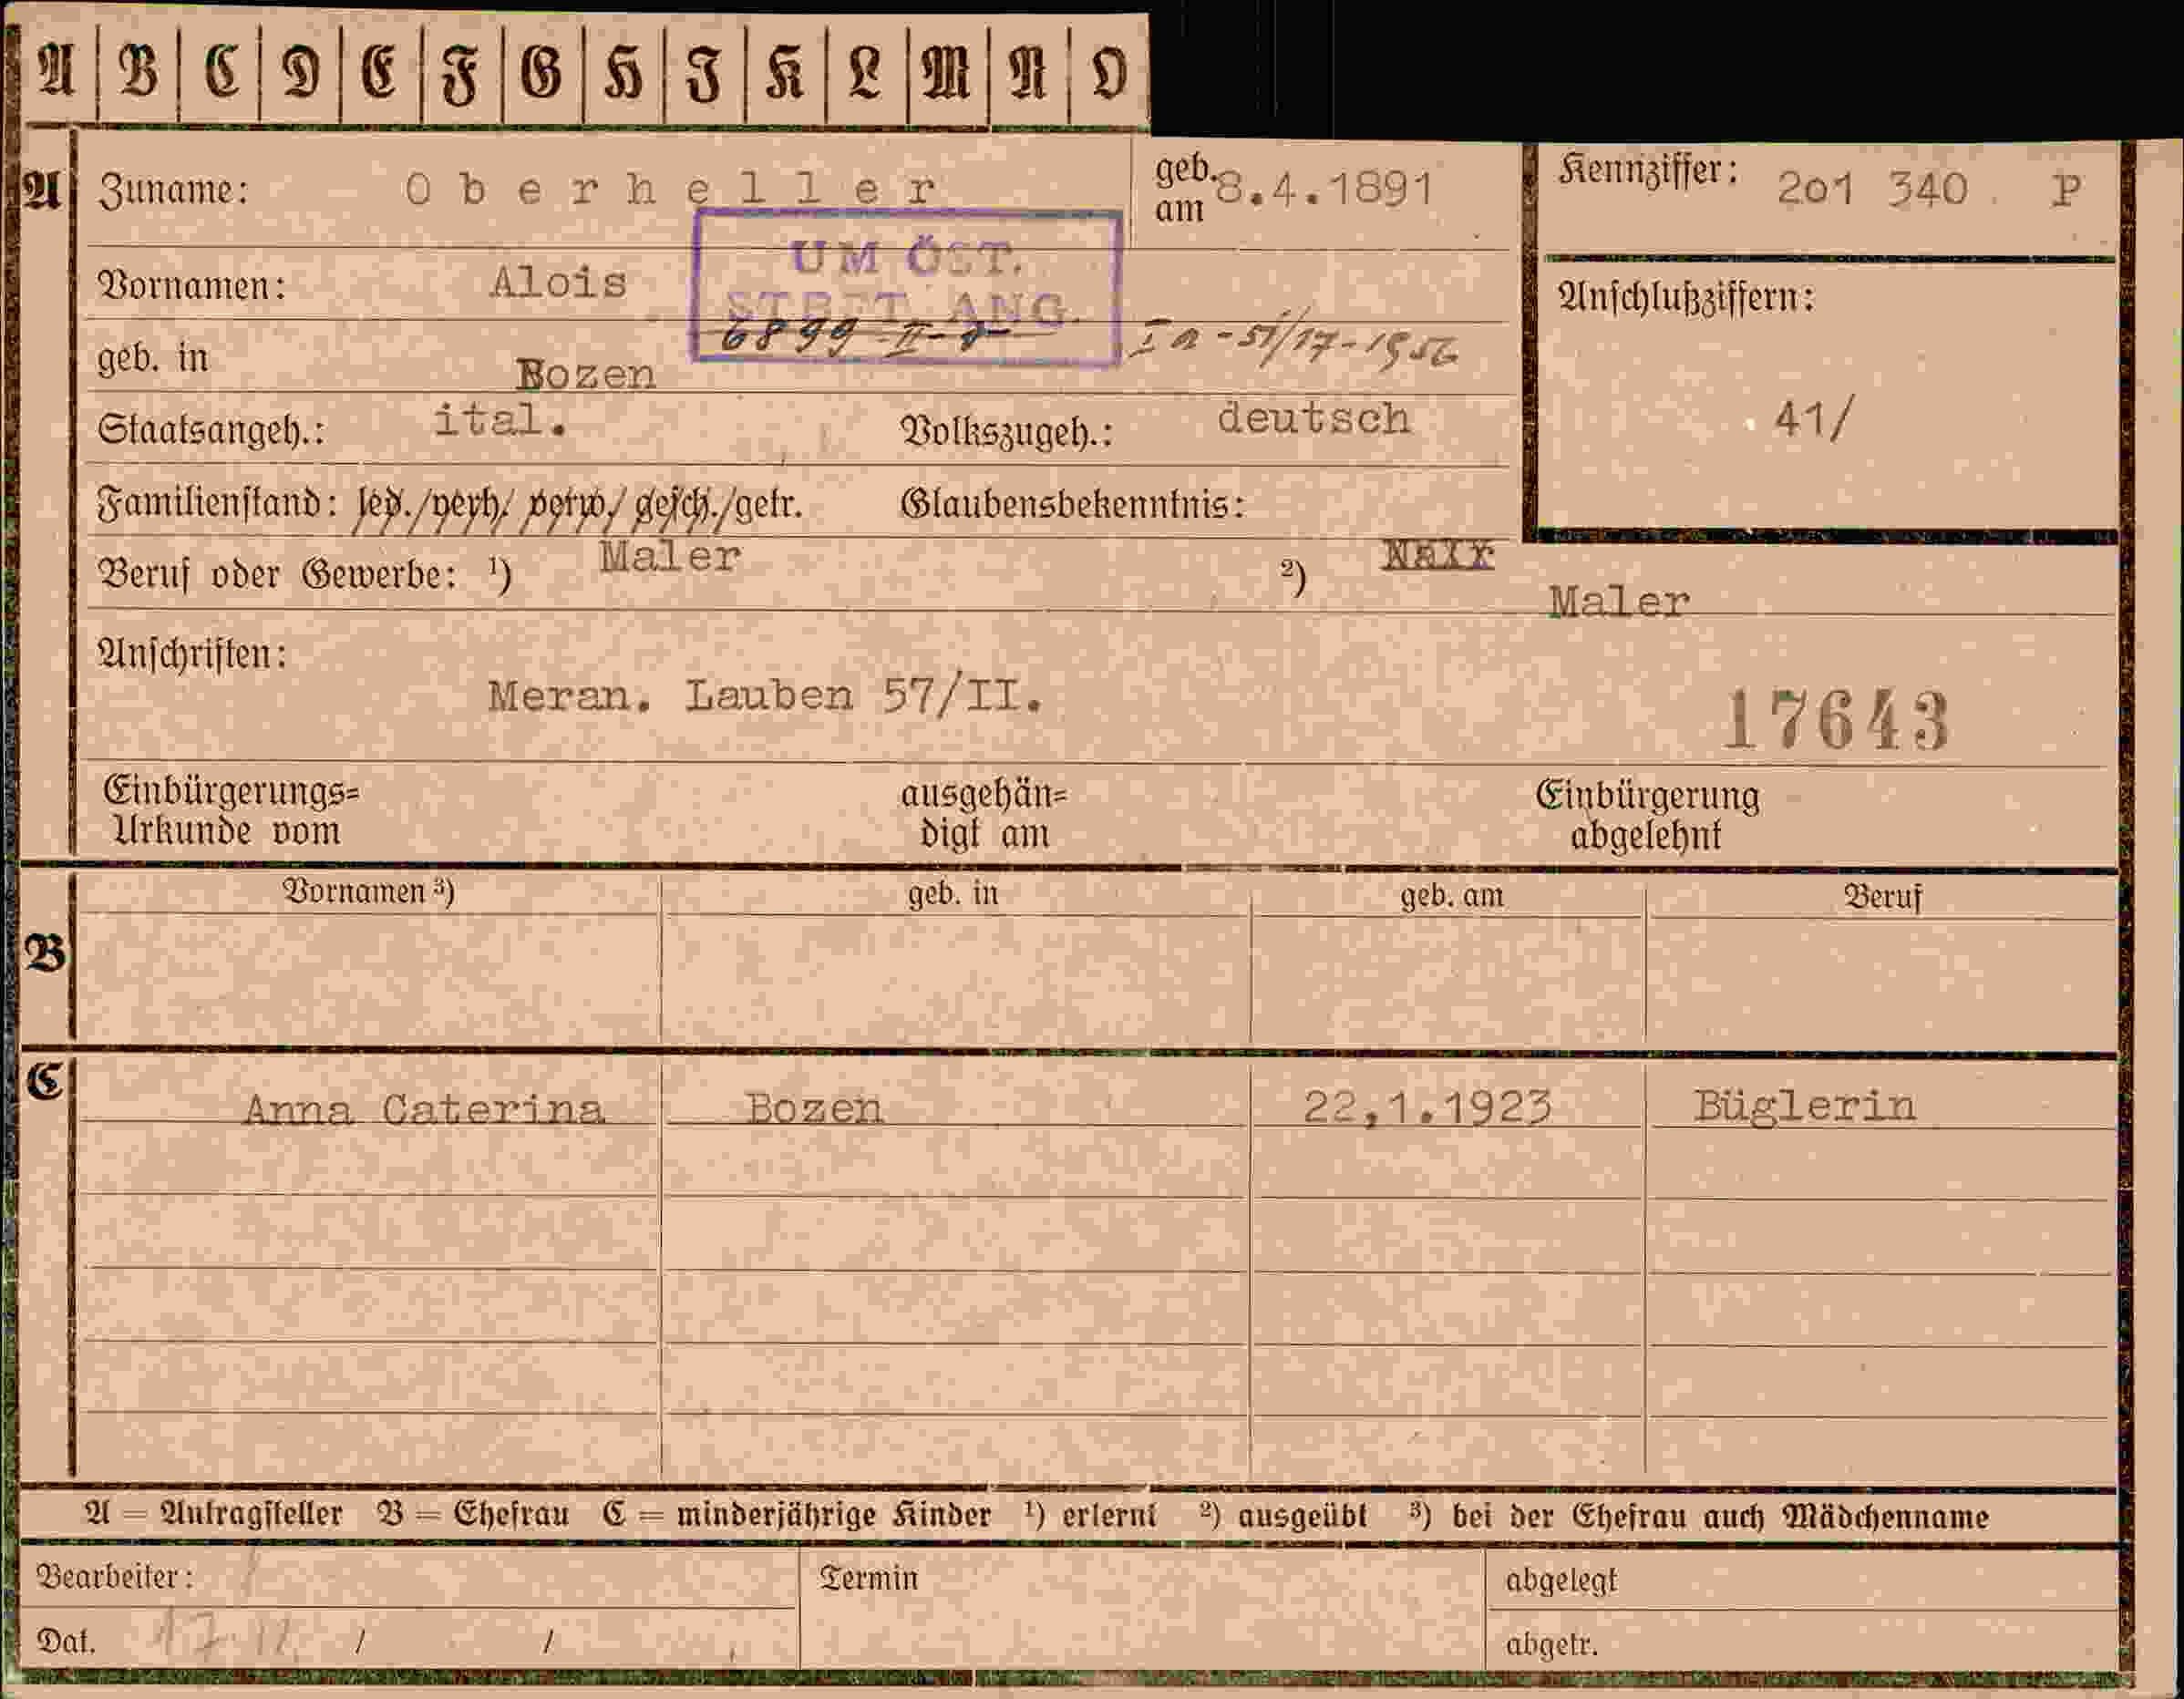 A B C D E F G H I K L M N O
A Zuname: Oberheller geb. am 8.4.1891 Kennziffer: 201 340 P
UM ÖST.
STBFT. ANG.
Vornamen: Alois
Anschlußziffern:
6899-II- Ia-51/17-1956
geb. in Bozen
41/
Staatsangeh.: ital. Volkszugeh.: deutsch
Familienstand: led./verh/ verw/ gesch./getr. Glaubensbekenntnis:
Beruf oder Gewerbe: ¹) Maler ²) Maler
Anschriften:
Meran. Lauben 57/II.
17643
Einbürgerungs= Urkunde vom ausgehän= digt am Einbürgerung abgelehnt
Vornamen ³) geb. in geb. am Beruf
B
C
Anna Caterina Bozen 22,1.1923 Büglerin
A = Antragsteller B = Ehefrau C = minderjährige Kinder ¹) erlernt ²) ausgeübt ³) bei der Ehefrau auch Mädchenname
Bearbeiter: Termin abgelegt
Dat. 17.11 / / abgetr.